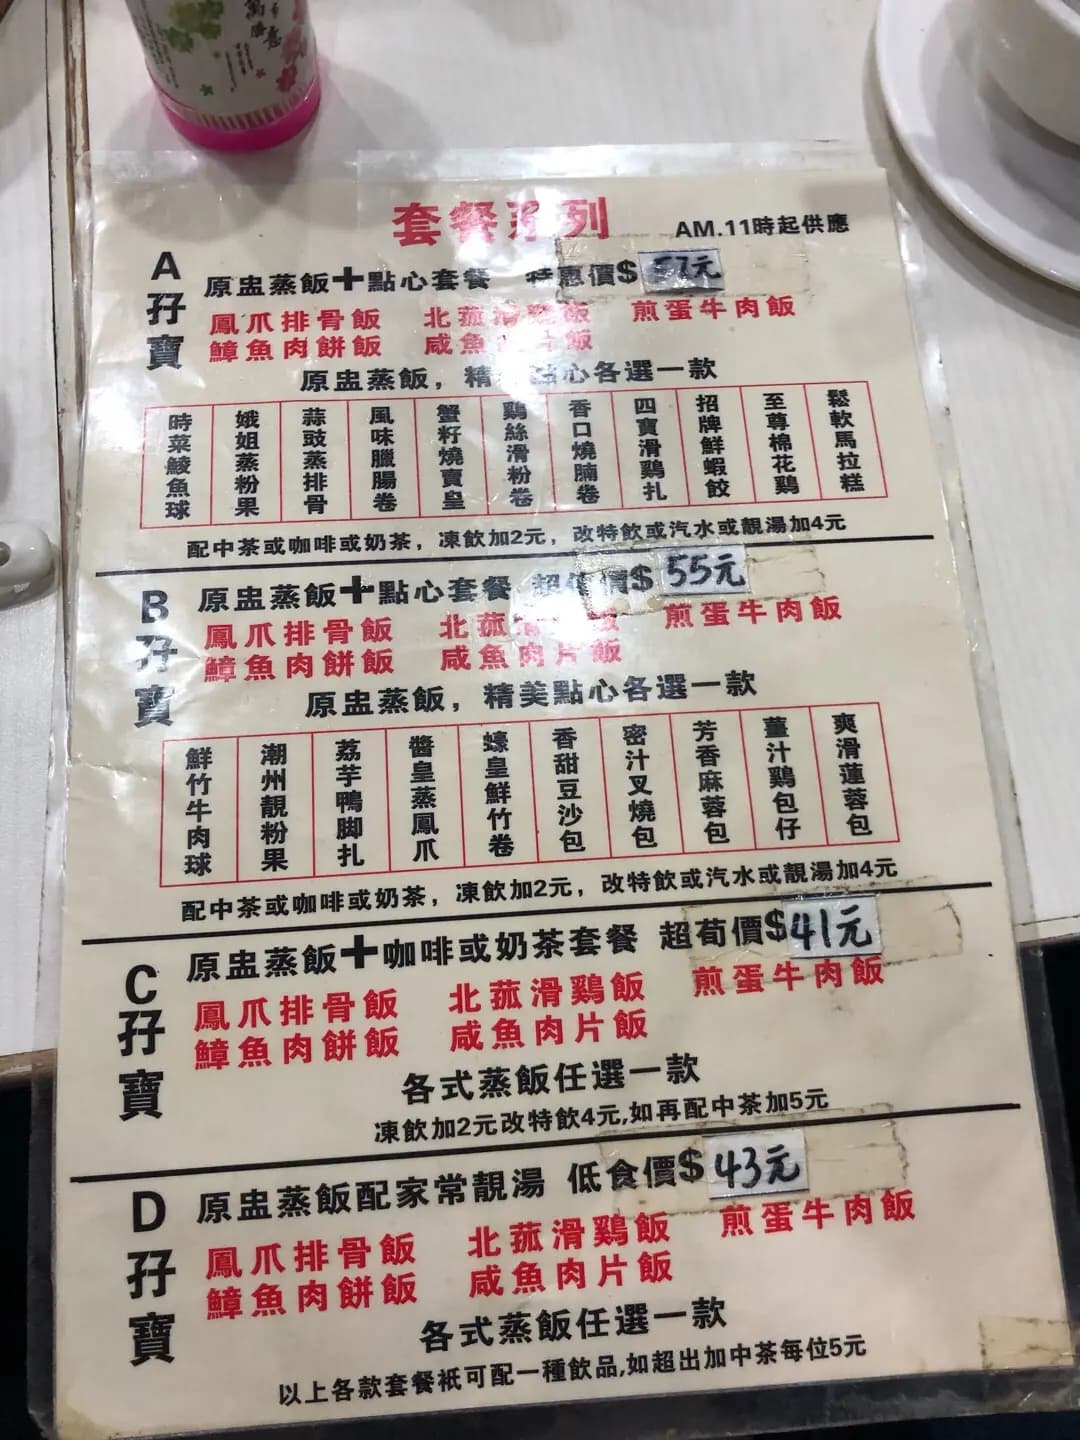 套餐系列
AM.11時起供應
A孖寶
原盅蒸飯+點心套餐 特惠價$57元
鳳爪排骨飯 北菰滑雞飯 煎蛋牛肉飯
鱆魚肉餅飯 咸魚肉片飯
原盅蒸飯，精美點心各選一款
時菜鯪魚球
娥姐蒸粉果
蒜豉蒸排骨
風味臘腸卷
蟹籽燒賣皇
鷄絲滑粉卷
香口燒腩卷
四寶滑鷄扎
招牌鮮蝦餃
至尊棉花鷄
鬆軟馬拉糕
配中茶或咖啡或奶茶，凍飲加2元，改特飲或汽水或靚湯加4元
B孖寶
原盅蒸飯+點心套餐 超值價$55元
鳳爪排骨飯 北菰滑鷄飯 煎蛋牛肉飯
鱆魚肉餅飯 咸魚肉片飯
原盅蒸飯，精美點心各選一款
鮮竹牛肉球
潮州靚粉果
荔芋鴨脚扎
醬皇蒸鳳爪
蠔皇鮮竹卷
香甜豆沙包
密汁叉燒包
芳香麻蓉包
薑汁鷄包仔
爽滑蓮蓉包
配中茶或咖啡或奶茶，凍飲加2元，改特飲或汽水或靚湯加4元
C孖寶
原盅蒸飯+咖啡或奶茶套餐 超荀價$41元
鳳爪排骨飯 北菰滑鷄飯 煎蛋牛肉飯
鱆魚肉餅飯 咸魚肉片飯
各式蒸飯任選一款
凍飲加2元改特飲4元,如再配中茶加5元
D孖寶
原盅蒸飯配家常靚湯 低食價$43元
鳳爪排骨飯 北菰滑鷄飯 煎蛋牛肉飯
鱆魚肉餅飯 咸魚肉片飯
各式蒸飯任選一款
以上各款套餐衹可配一種飲品,如超出加中茶每位5元